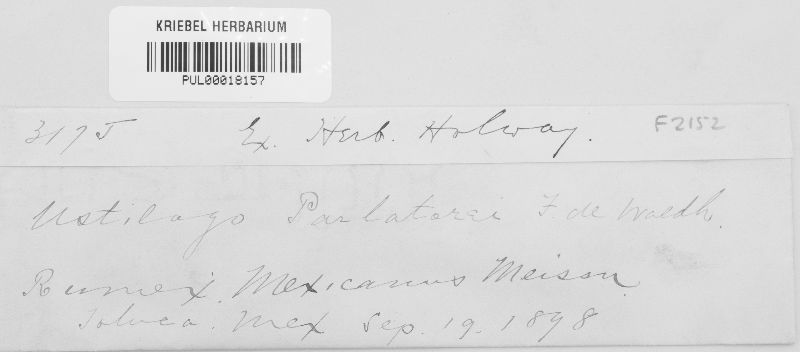 KRIEBEL HERBARIUM
PUL00018157
3175 Ex. Herb. Holway. F2152
Ustilago Parlatorei F. de Waldh.
Rumex Mexicanus Meison
Toluca. Mex Sep. 19. 1898